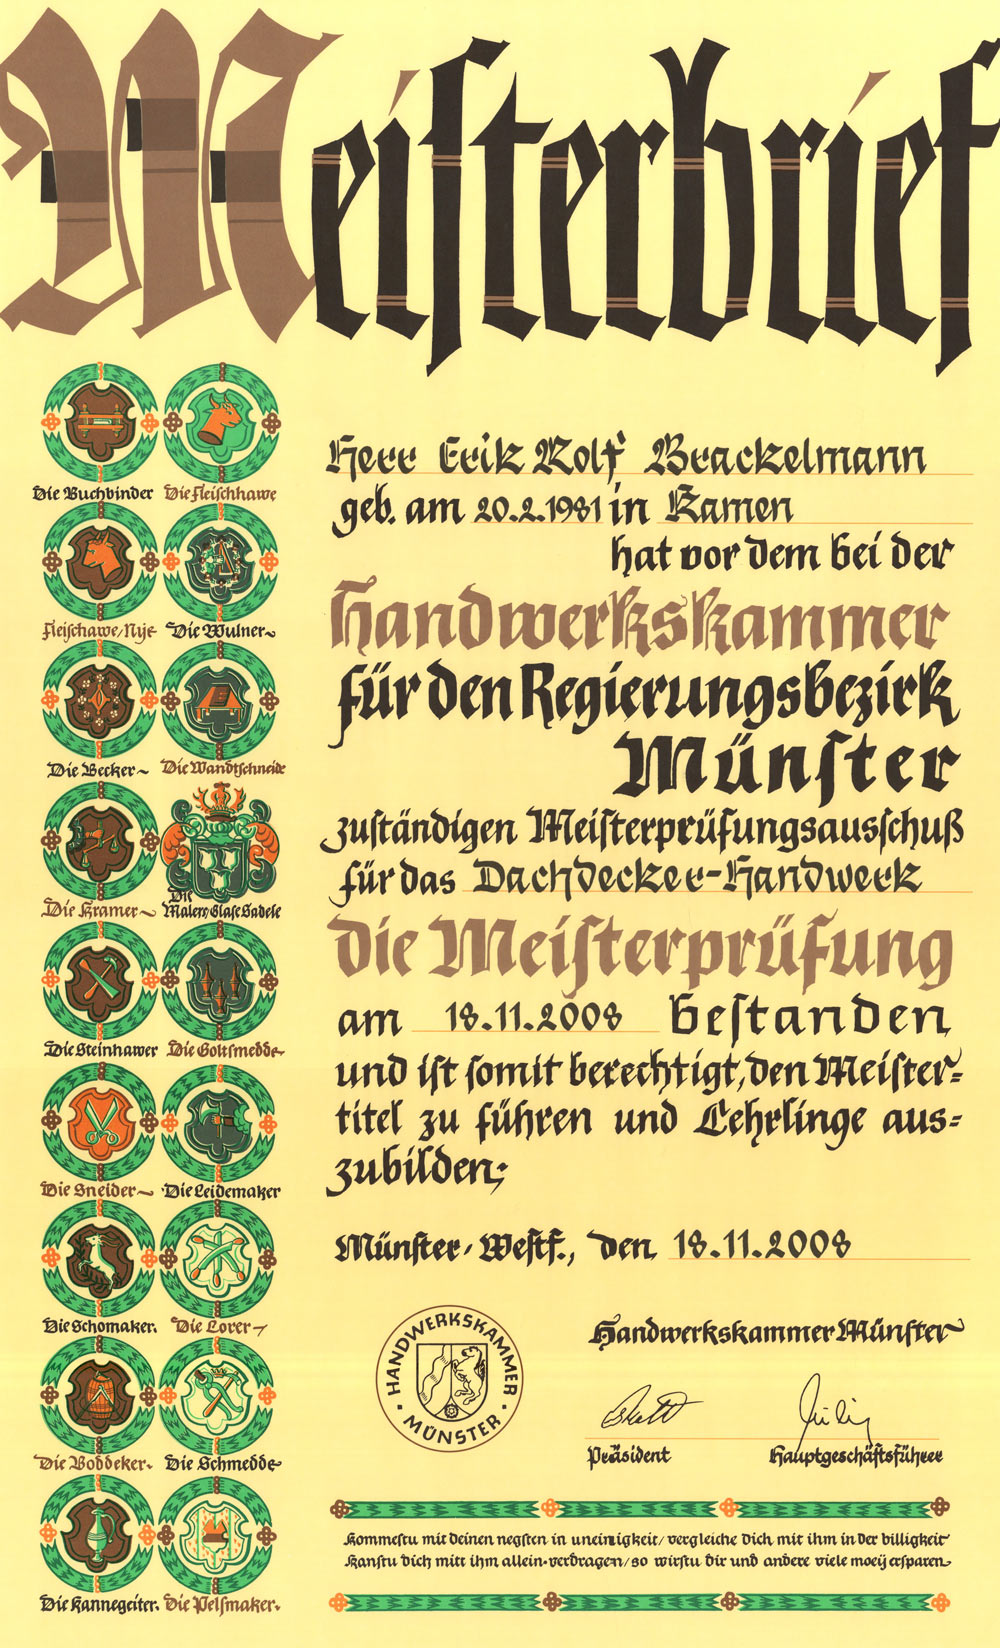 Meisterbrief
Die Buchbinder
Die Fleischhawe
Fleischawe/Nije
Die Wulner
Die Becker
Die Wandtschneide
Die Kramer
Die Maler, Glase Sadele
Die Steinhawer
Die Goltsmedde
Die Sneider
Die Leidemaker
Die Schomaker.
Die Lorer
Die Boddeker.
Die Schmedde
Die Kannegeiter.
Die Pelsmaker.
Herr Erik Rolf Brackelmann
geb. am 20.2.1981 in Kamen
hat vor dem bei der
Handwerkskammer
für den Regierungsbezirk
Münster
zuständigen Meisterprüfungsausschuß
für das Dachdecker-Handwerk
die Meisterprüfung
am 18.11.2008 bestanden
und ist somit berechtigt, den Meister=
titel zu führen und Lehrlinge aus=
zubilden;
Münster/Westf., den 18.11.2008
HANDWERKSKAMMER
• MÜNSTER •
Handwerkskammer Münster
Präsident
Hauptgeschäftsführer
Kommestu mit deinen negsten in uneinigkeit/vergleiche dich mit ihm in der billigkeit
Kanstu dich mitt ihm allein verdragen/so wirstu dir und andere viele moeÿ ersparen